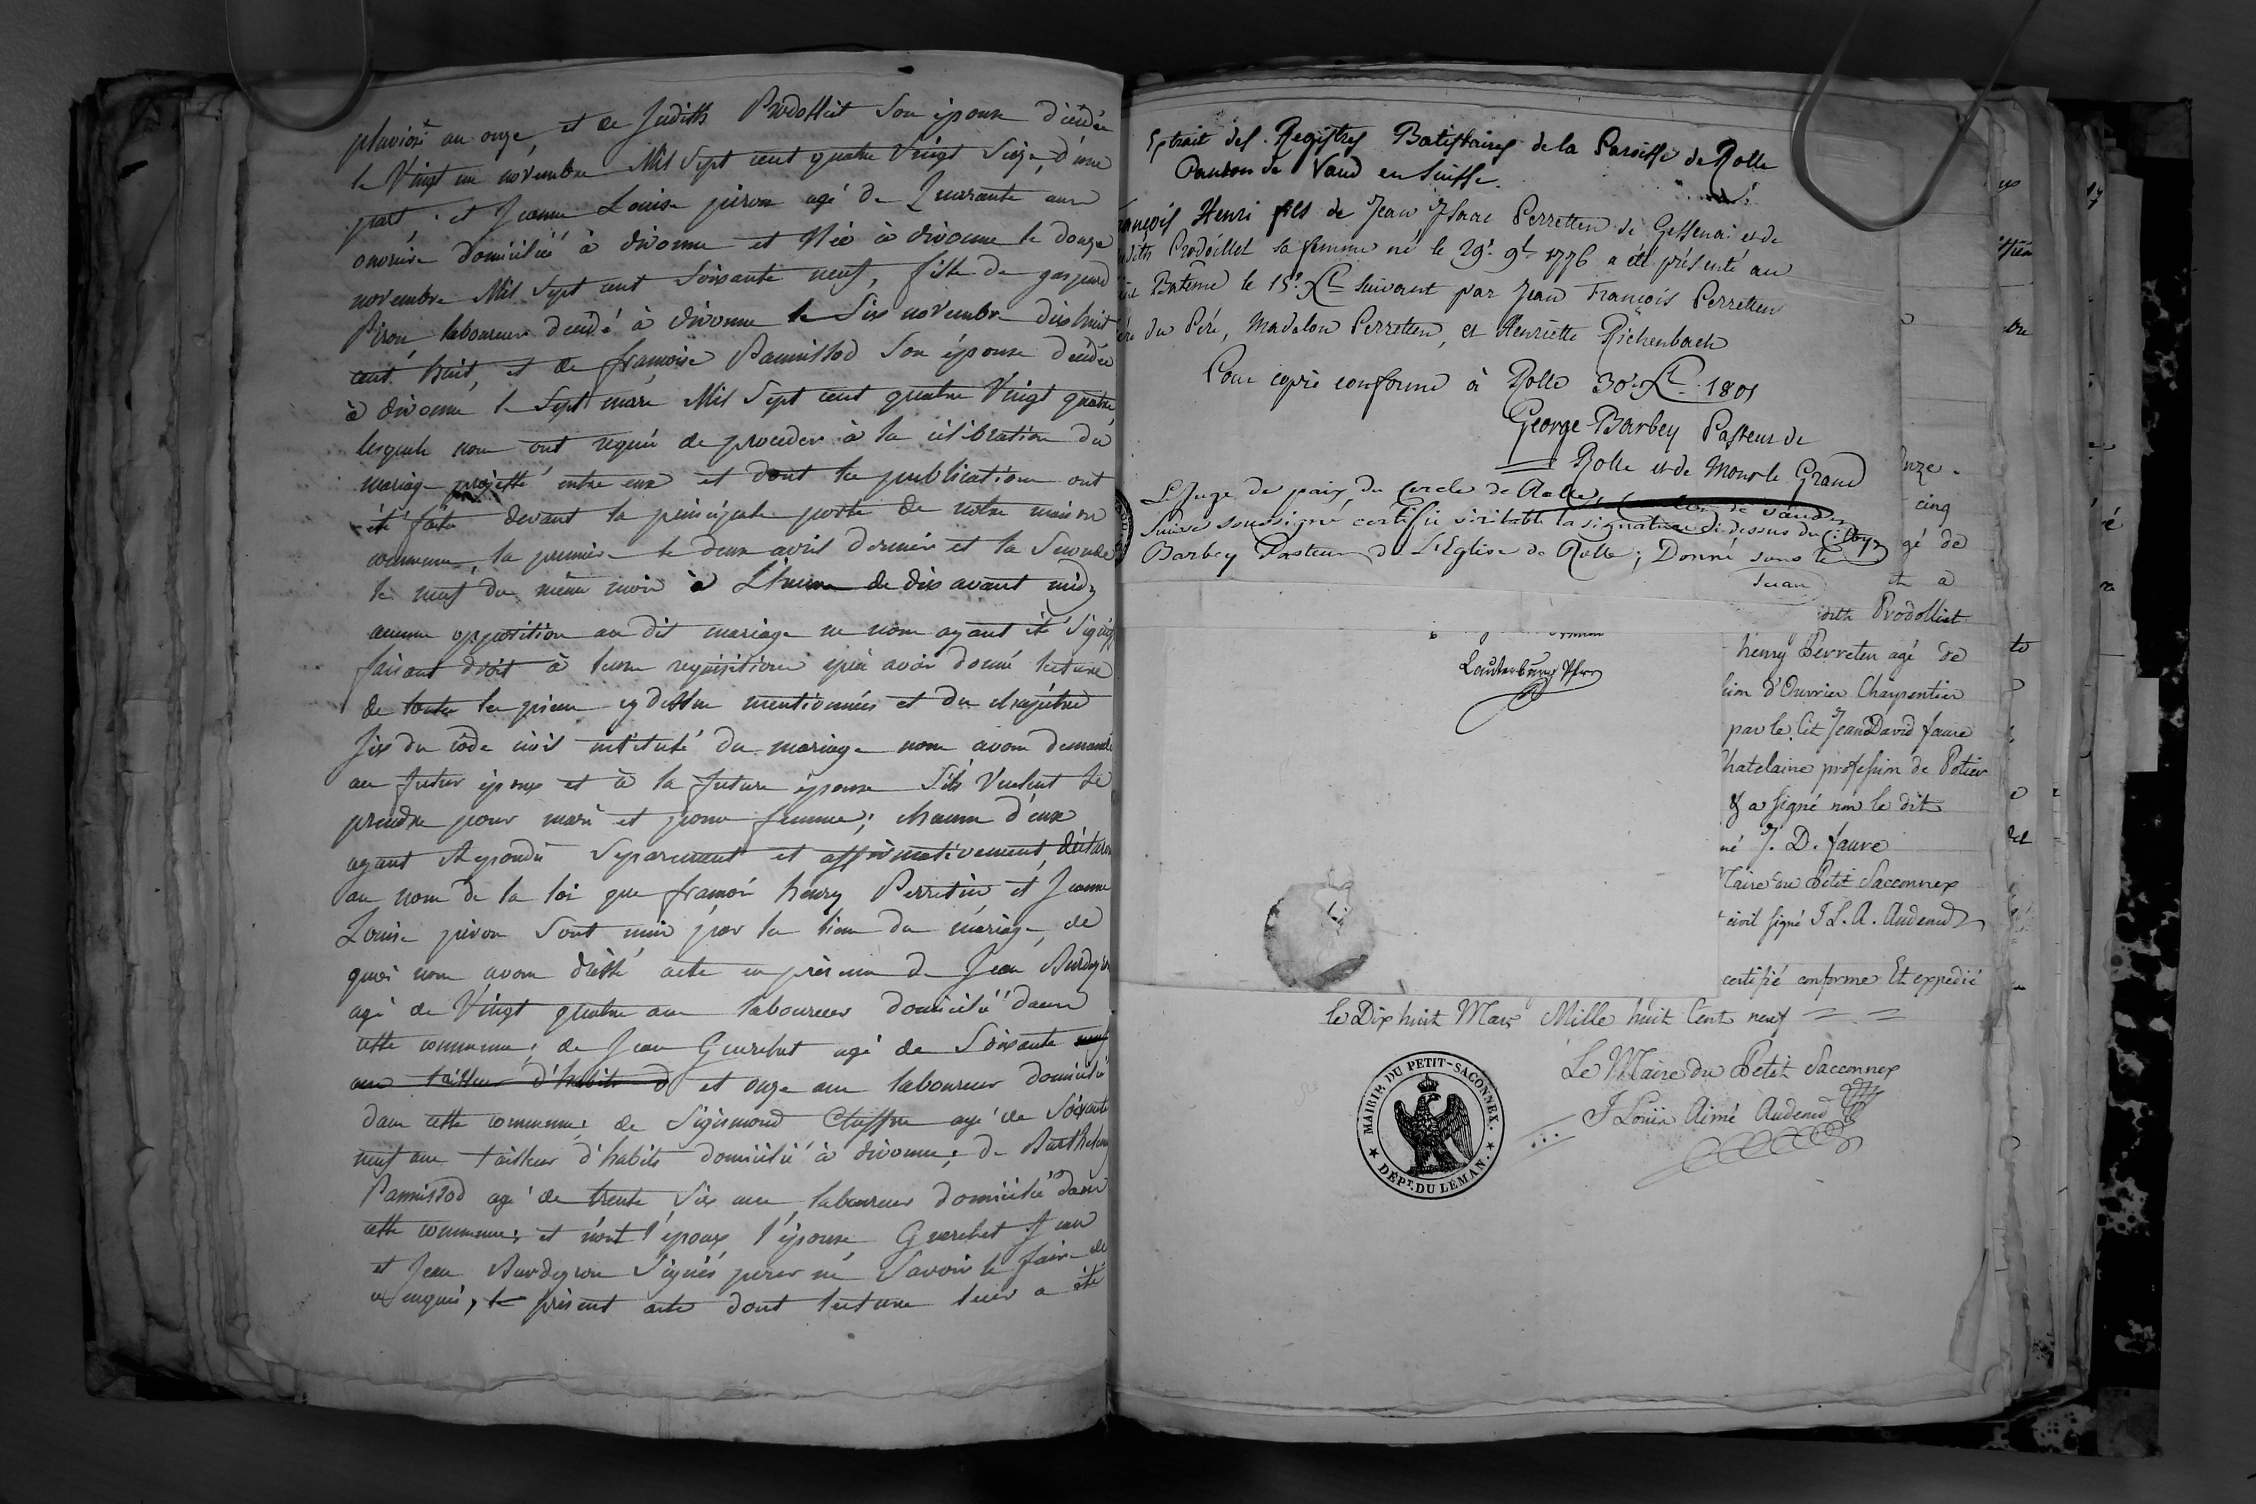 pluviose an onze, et de Judith Prodolliet Son épouse décédée
le Vingt un novembre Mil Sept cent quatre Vingt Seize, d'une
part, et Jeanne Louise piron agé de Quarante ans
ouvrière domiciliée à divonne et Née à divonne le douze
novembre Mil Sept cent Soixante neuf, fille de gaspard
Piron laboureur décédé à divonne le Six novembre dix huit
cent huit, et de françoise Pannissod Son épouse décédée
à divonne le Sept mars Mil Sept cent quatre Vingt quatre
lesquels nous ont requis de proceder à la célébration du
mariage projetté entre eux et dont les publications ont
été faites devant la principale porte de notre maison
commune, la premiere le deux avril dernier et la Seconde
le neuf du même mois à L'heure de dix avant midy
aucune opposition au dit mariage ne nous ayant été Signifiée
faisant droit à leurs requisitions après avoir donné lecture
de toutes les pieces cy dessus mentionnées et du chapitre
Six du code civil intitulé du mariage nous avons demandé
au futur époux et à la future épouse S'ils Veulent Se
prendre pour mari et pour femme; chacun d'eux
ayant Repondu Separement et affirmativement, déclarons
au nom de la loi que françois henry Perretin et Jeanne
Louise piron Sont unis par les liens du mariage, de
quoi nous avons dressé acte en présence de Jean Burdeyron
agé de Vingt quatre ans laboureur domicilié dans
cette commune; de Jean Guerchet agé de Soixante neuf
ans tailleur d'habits d et onze ans laboureur domicilié
dans cette commune; de Sigismond agé de Soixante
neuf ans tailleur d'habits domicilié à divonne; de Barthelemy
Pannissod agé de trente Six ans laboureur domicilié dans
cette commune; et n'ont l'époux l'épouse Guerchet Jean
et Jean Burdeyron Signés pour ne Savoir le faire de
ce enquis, le présent acte dont lecture leur a été
Extrait des Registres Batistaires de la Paroisse de Rolle
Canton de Vaud en Suisse.
françois Henri fils de Jean Isaac Perretten de Gessenai et de
Judith Prodolliet sa femme né le 29e 9bre 1776 a été présenté au
Batême le 15e Xbre suivant par Jean François Perretten
frère du Père, Madelon Perretten, et Henriette Richenbach
Pour copie conforme à Rolle 30e Xbre 1801
George Barbey Pasteur de
Rolle et de Mont le Grand
Le Juge de paix du Cercle de Rolle, Canton de Vaud en
Suisse soussigné certifie véritable la signature ci dessus du Citoyen
Barbey Pasteur de L'Eglise de Rolle; Donné sous le
Sceau
onze.
cinq
gé de
Judith Prodolliet
Lauterburg Pfr
henry Perreten agé de
sion d'Ouvrier Charpentier
par le Cit Jean David faure
Chatelaine profession de Potier
& a signé non le dit
né J. D. faure
Maire du Petit Saconnex
civil signé J L. A. Audeoud
certifié conforme Et expédié
le Dix huit Mars Mille huit Cent neuf
Le Maire du Petit Saconnex
J Louis Aimé Audeoud
MAIRIE DU PETIT-SACONNEX.
DÉPT. DU LÉMAN.